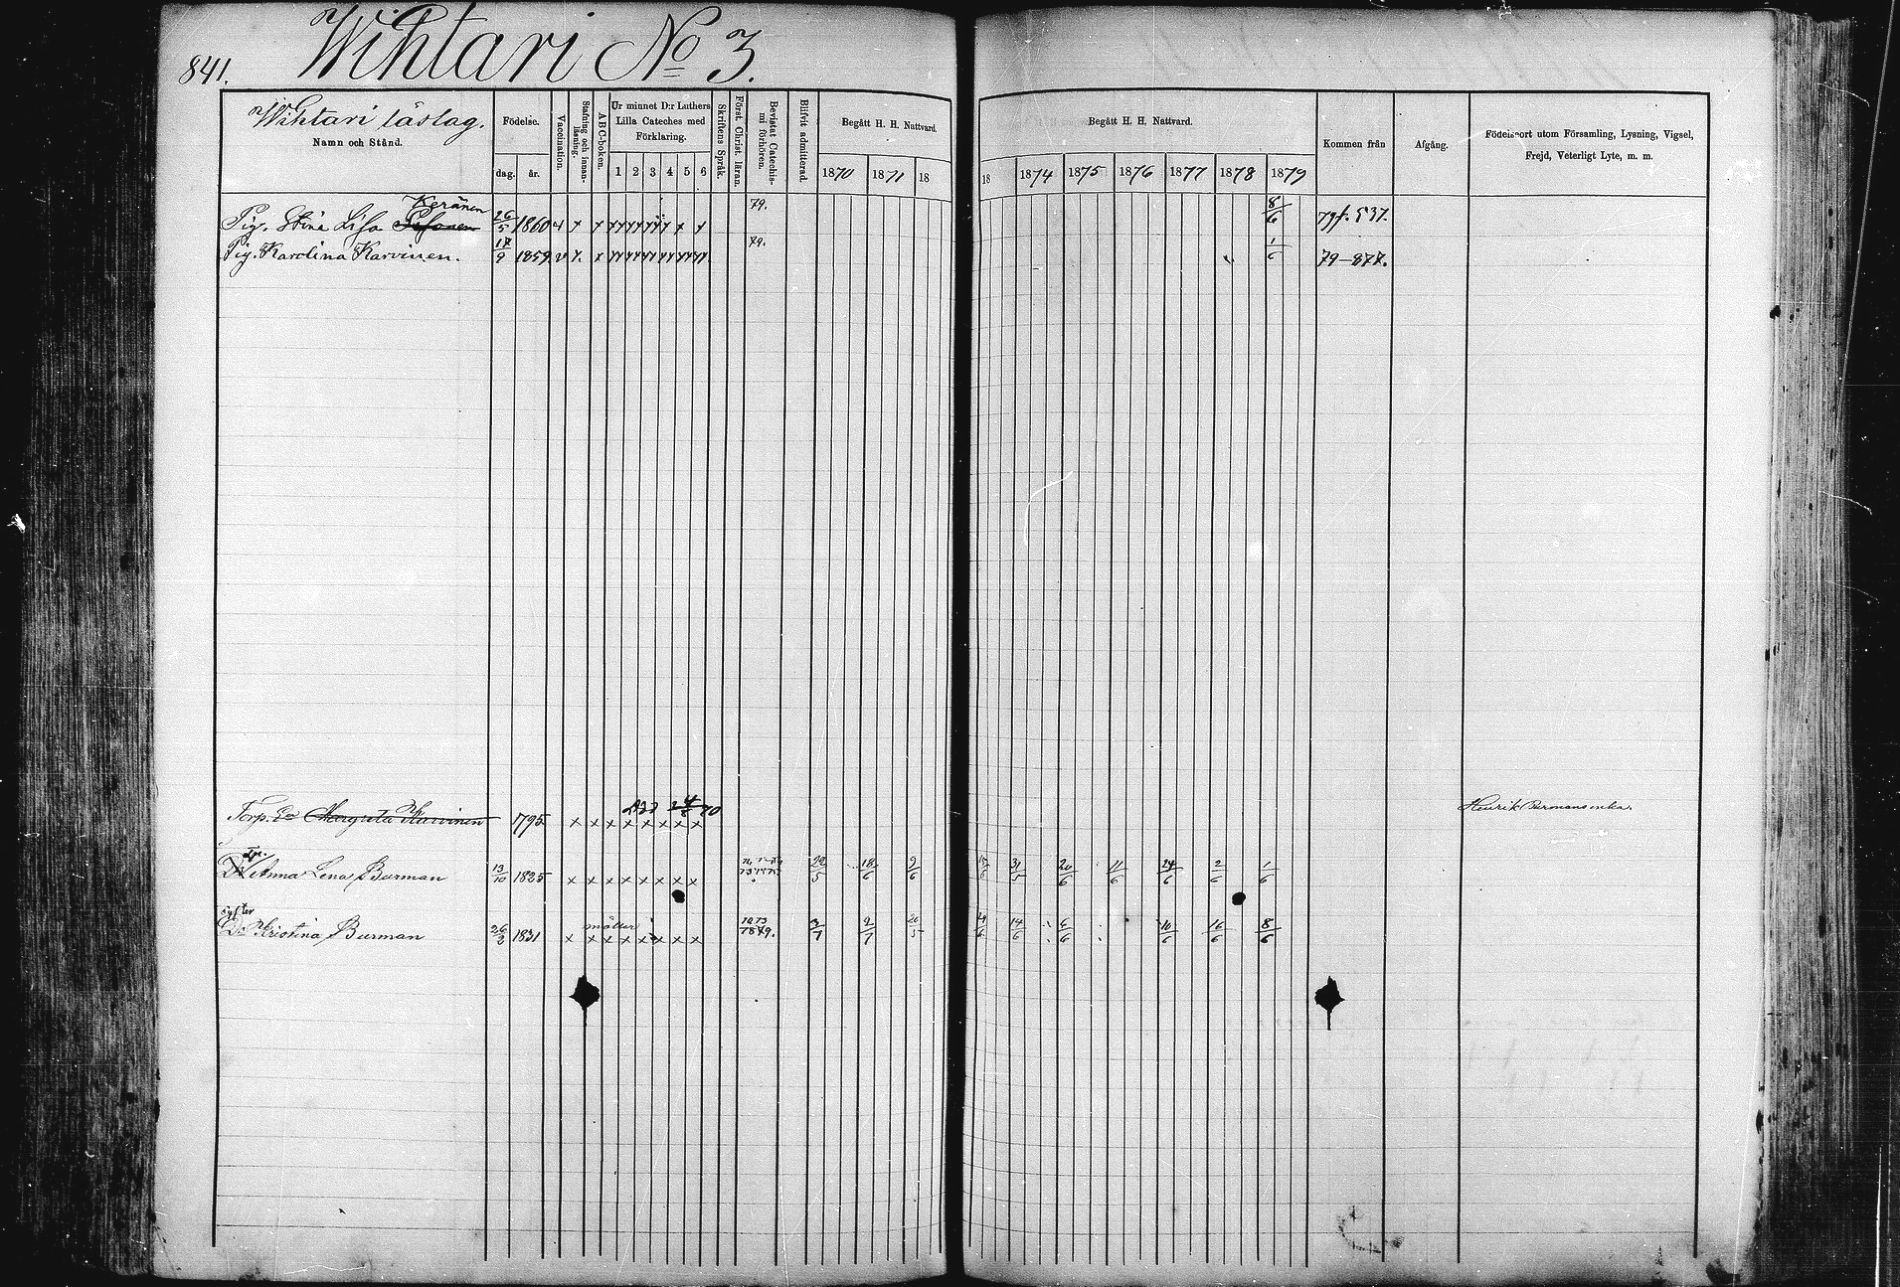 841.
Wihtari No 3.
Wihtari läslag.
Namn och Stånd.
Födelse.
dag. år.
Vaccination.
Stafning och innanläsning.
ABC-boken.
Ur minnet D:r Luthers
Lilla Cateches med
Förklaring.
1 2 3 4 5 6
Skriftens Språk.
Först. Christ. läran.
Bevistat Catechismi förhören.
Blifvit admitterad.
Begått H. H. Nattvard.
1870 1871 18
Begått H. H. Nattvard.
18 1874 1875 1876 1877 1878 1879
Kommen från
Afgång.
Födelseort utom Församling, Lysning, Vigsel,
Frejd, Veterligt Lyte, m. m.
Keränen
Pig. Stina Lisa 26/5 1860 79. 8/6 537.
Pig. Karolina Karvinen. 17/9 1859 79. 1/6 79-877.
Torp. Margreta Karvinen 1795 70 Henrik
Anna Lena Burman 13/10 1825 18/6 9/6 31/5 20/6 11/6 24/6 2/6 1/6
syster
Kristina Burman 26/2 1831 3/7 9/7 14/6 6/6 10/6 16/6 8/6